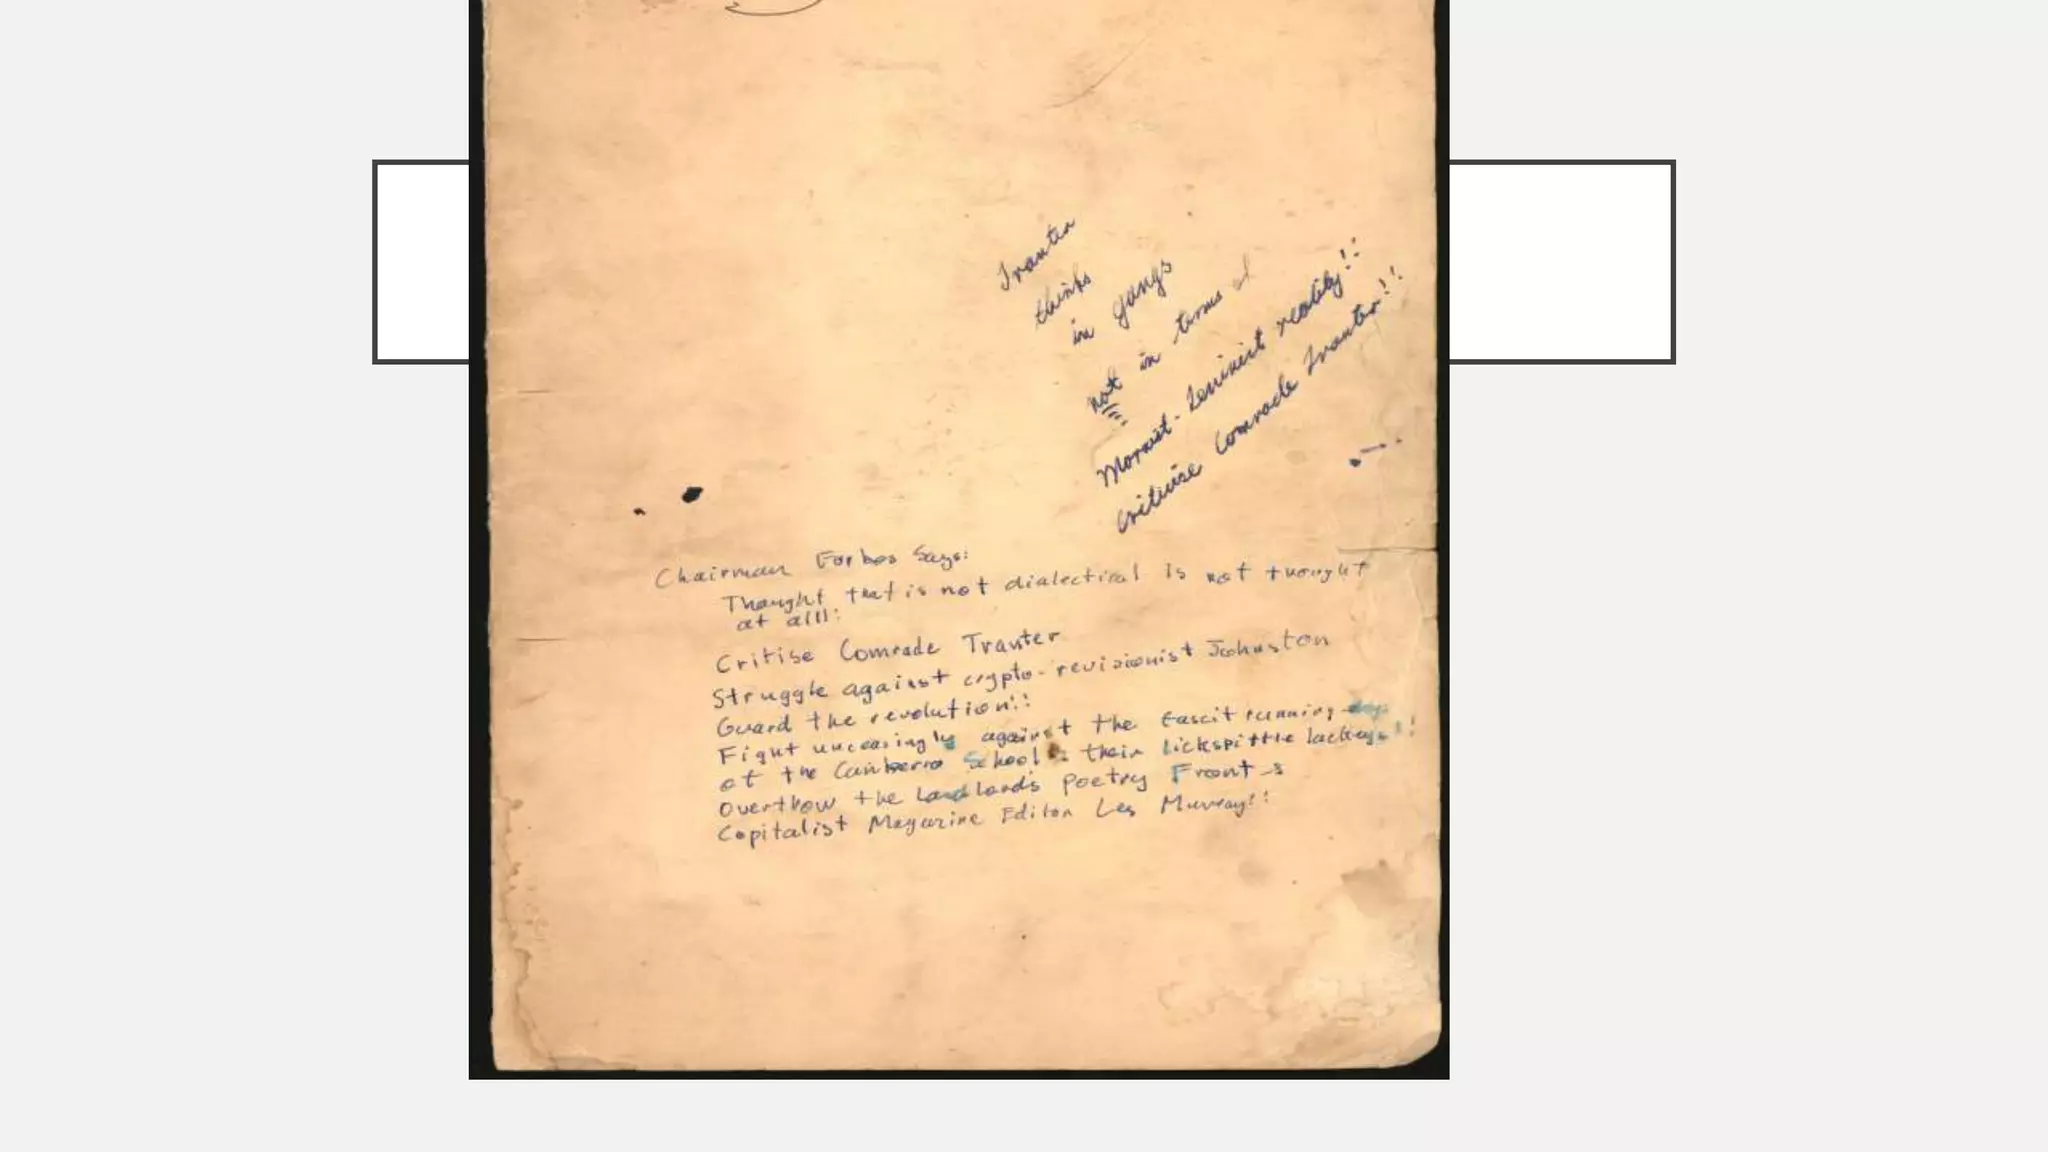 Tranter
thinks
in gangs
not in terms of
Marxist-Leninist reality!!
criticise Comrade Tranter!!
Chairman Forbes Says:
Thought that is not dialectical is not thought
at all!!
Critise Comrade Tranter
Struggle against crypto-revisionist Johnston
Guard the revolution!!
Fight unceasingly against the fascit running dogs
of the Canberra School & their lickspittle lackeys!!
Overthrow the landlords Poetry Front -s
Capitalist Magazine Editor Les Murray!!